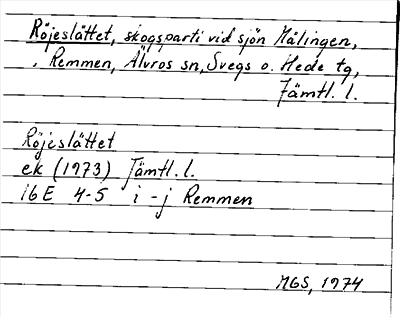 Röjeslåttet, skogsparti vid sjön Målingen,
Remmen, Älvros sn, Svegs o. Hede tg,
Jämtl. l.
Röjeslåttet
ek (1973) Jämtl. l.
16E 4-5 i-j Remmen
MGS, 1974